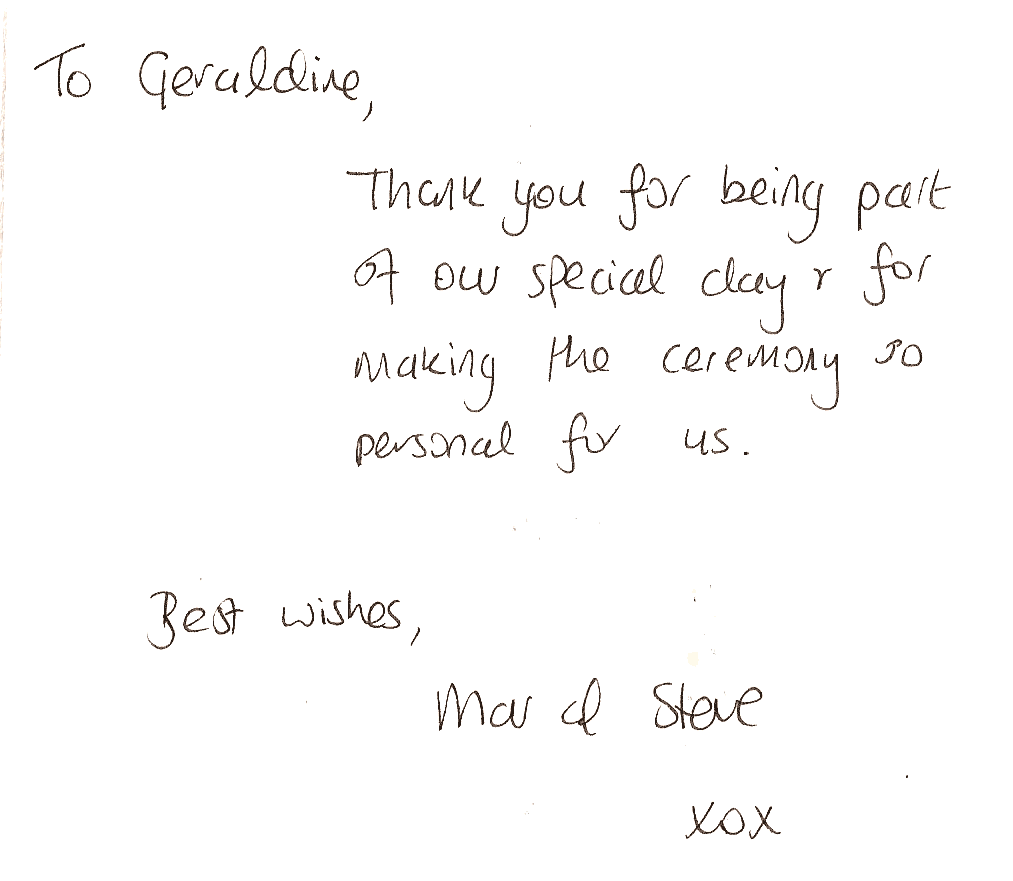 To Geraldine,
Thank you for being part
of our special day & for
making the ceremony so
personal for us.
Best wishes,
Mar & Steve
xox